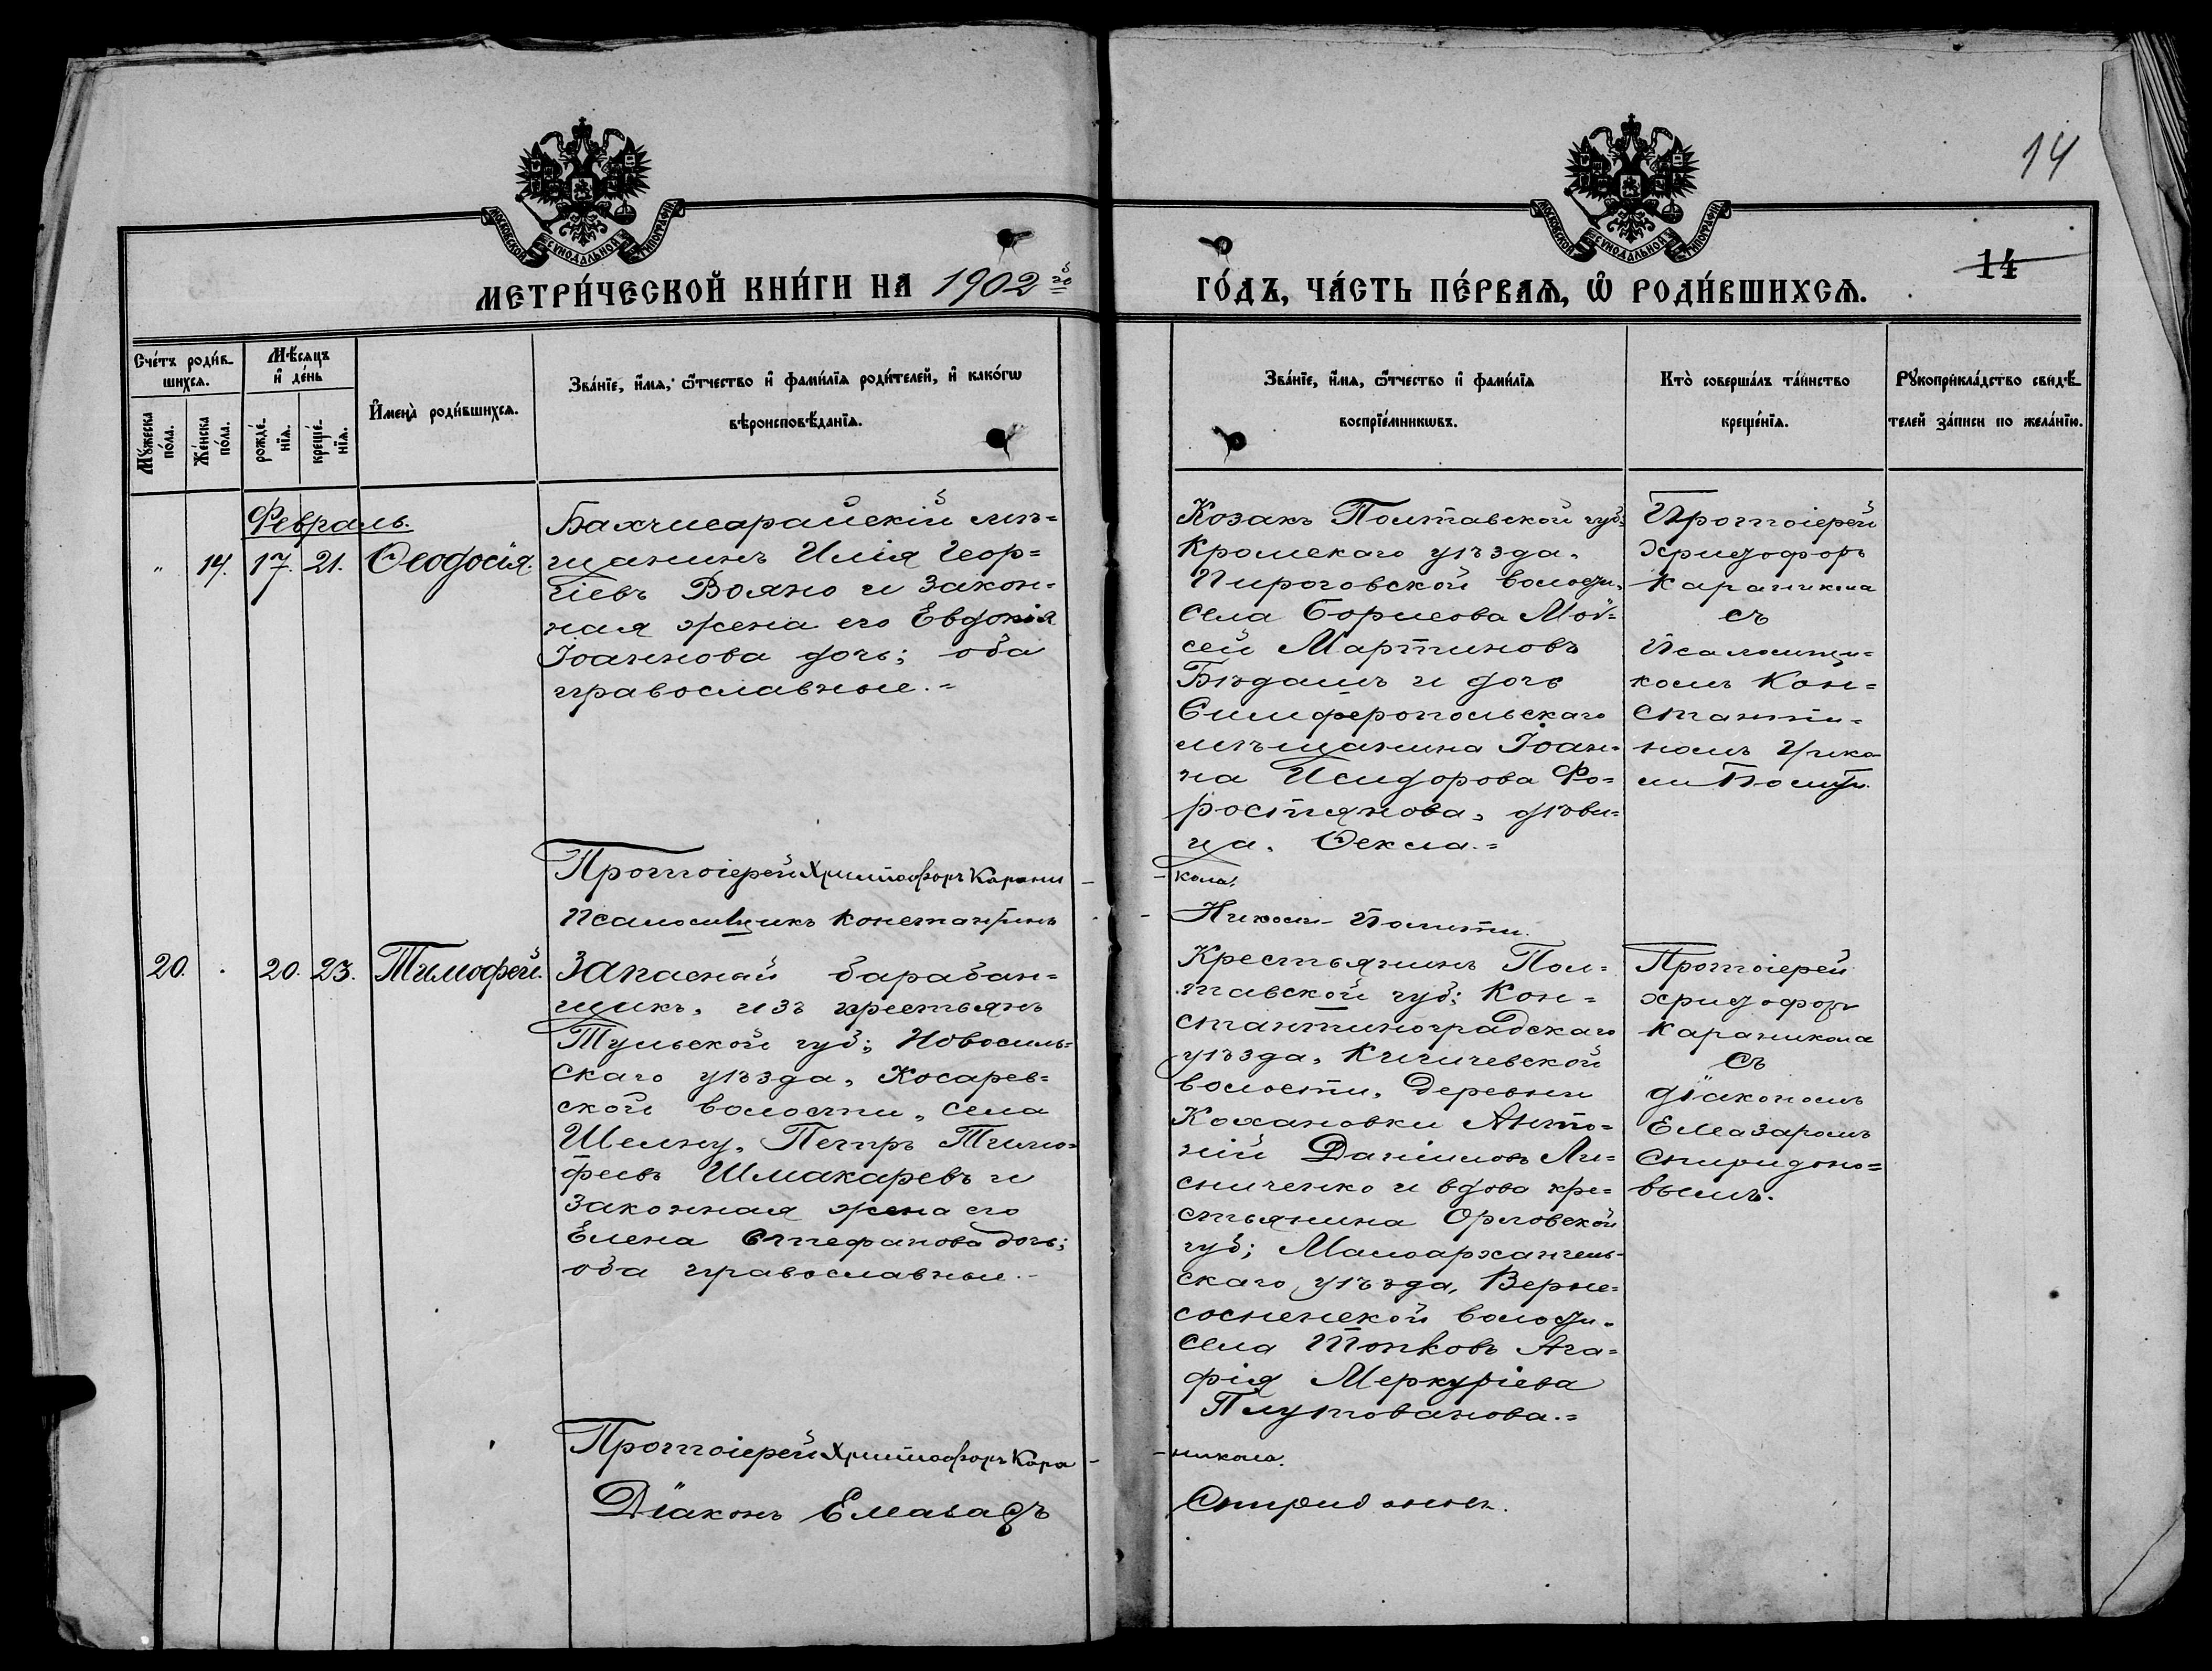 14
МОСКОВСКОЙ СУНОДАЛЬНОЙ ТИПОГРАФІИ
МОСКОВСКОЙ СУНОДАЛЬНОЙ ТИПОГРАФІИ
14
МЕТРИ́ЧЕСКОЙ КНИ́ГИ НА 1902 го
ГО́ДЪ, ЧА́СТЬ ПЕ́РВАѦ, Ѡ҆ РОДИ́ВШИХСѦ.
Сче́тъ роди́в-
шихсѧ.
Мꙋ́жеска по́ла.
Же́нска по́ла.
Мѣ́сяцъ и҆ де́нь
рожде́-
нїѧ.
креще́-
нїѧ.
И҆мена̀ роди́вшихсѧ.
Зва́нїе, и҆́мѧ, ѻ҆́тчество и҆ фамн́лїѧ роди́телей, и҆ како́гѡ
вѣроисповѣ́данїѧ.
Зва́нїе, и҆́мѧ, ѻ҆́тчество и҆ фами́лїѧ
воспрїе́мникѡвъ.
Кто̀ соверша́лъ та́инство
креще́нїѧ.
Рꙋкоприкла́дство свидѣ́-
телей за́писи по жела́нїю.
Февраль.
" 14. 17. 21. Ѳеодосія.
Бахчисарайскій мѣ-
щанинъ Илія Геор-
гіевъ Вояно и закон-
ная жена его Евдокія
Іоаннова дочь; оба
православные.=
Козакъ Полтавской губ:
Кромскаго уѣзда,
Пироговской волости,
села Борисова Мой-
сей Мартиновъ
Бѣдашъ и дочь
Симферопольскаго
мѣщанина Іоан-
на Исидорова Фо-
ростянова, дѣви-
ца, Ѳекла.=
Протоіерей
Хризофоръ
Караникола
съ
Псаломщи-
комъ Кон-
станти-
номъ Нико
Протоіерей Христофоръ Карани -
- кола.
Псаломщикъ Константинъ
- Николи- Политти.
20. . 20. 23. Тимофей.
Запасный барабан-
щикъ, изъ крестьянъ
Тульской губ; Новосиль-
скаго уѣзда, Косарев-
ской волости, села
Шелну, Петръ Тимо-
феевъ Шмакаревъ и
законная жена его
Елена Стефанова дочь;
оба православные.-
Крестьянинъ Пол-
тавской губ; Кон-
стантиноградскаго
уѣзда, Кигичевской
волости, деревни
Кохановки Анто-
ній Даніиловъ Ли-
сниченко и вдова кре-
стьянина Орловской
губ; Малоархангель-
скаго, уѣзда, Верхне-
сосненской волости,
села Топковъ Ага-
фія Меркуріева
Плутованова.=
Протоіерей
Хризофоръ
Караникола
съ
діакономъ
Елазаромъ
Спиридоно-
вымъ.
Протоіерей Христофоръ Кара -
- никола.
Діаконъ Елазаръ
Спиридоновъ.